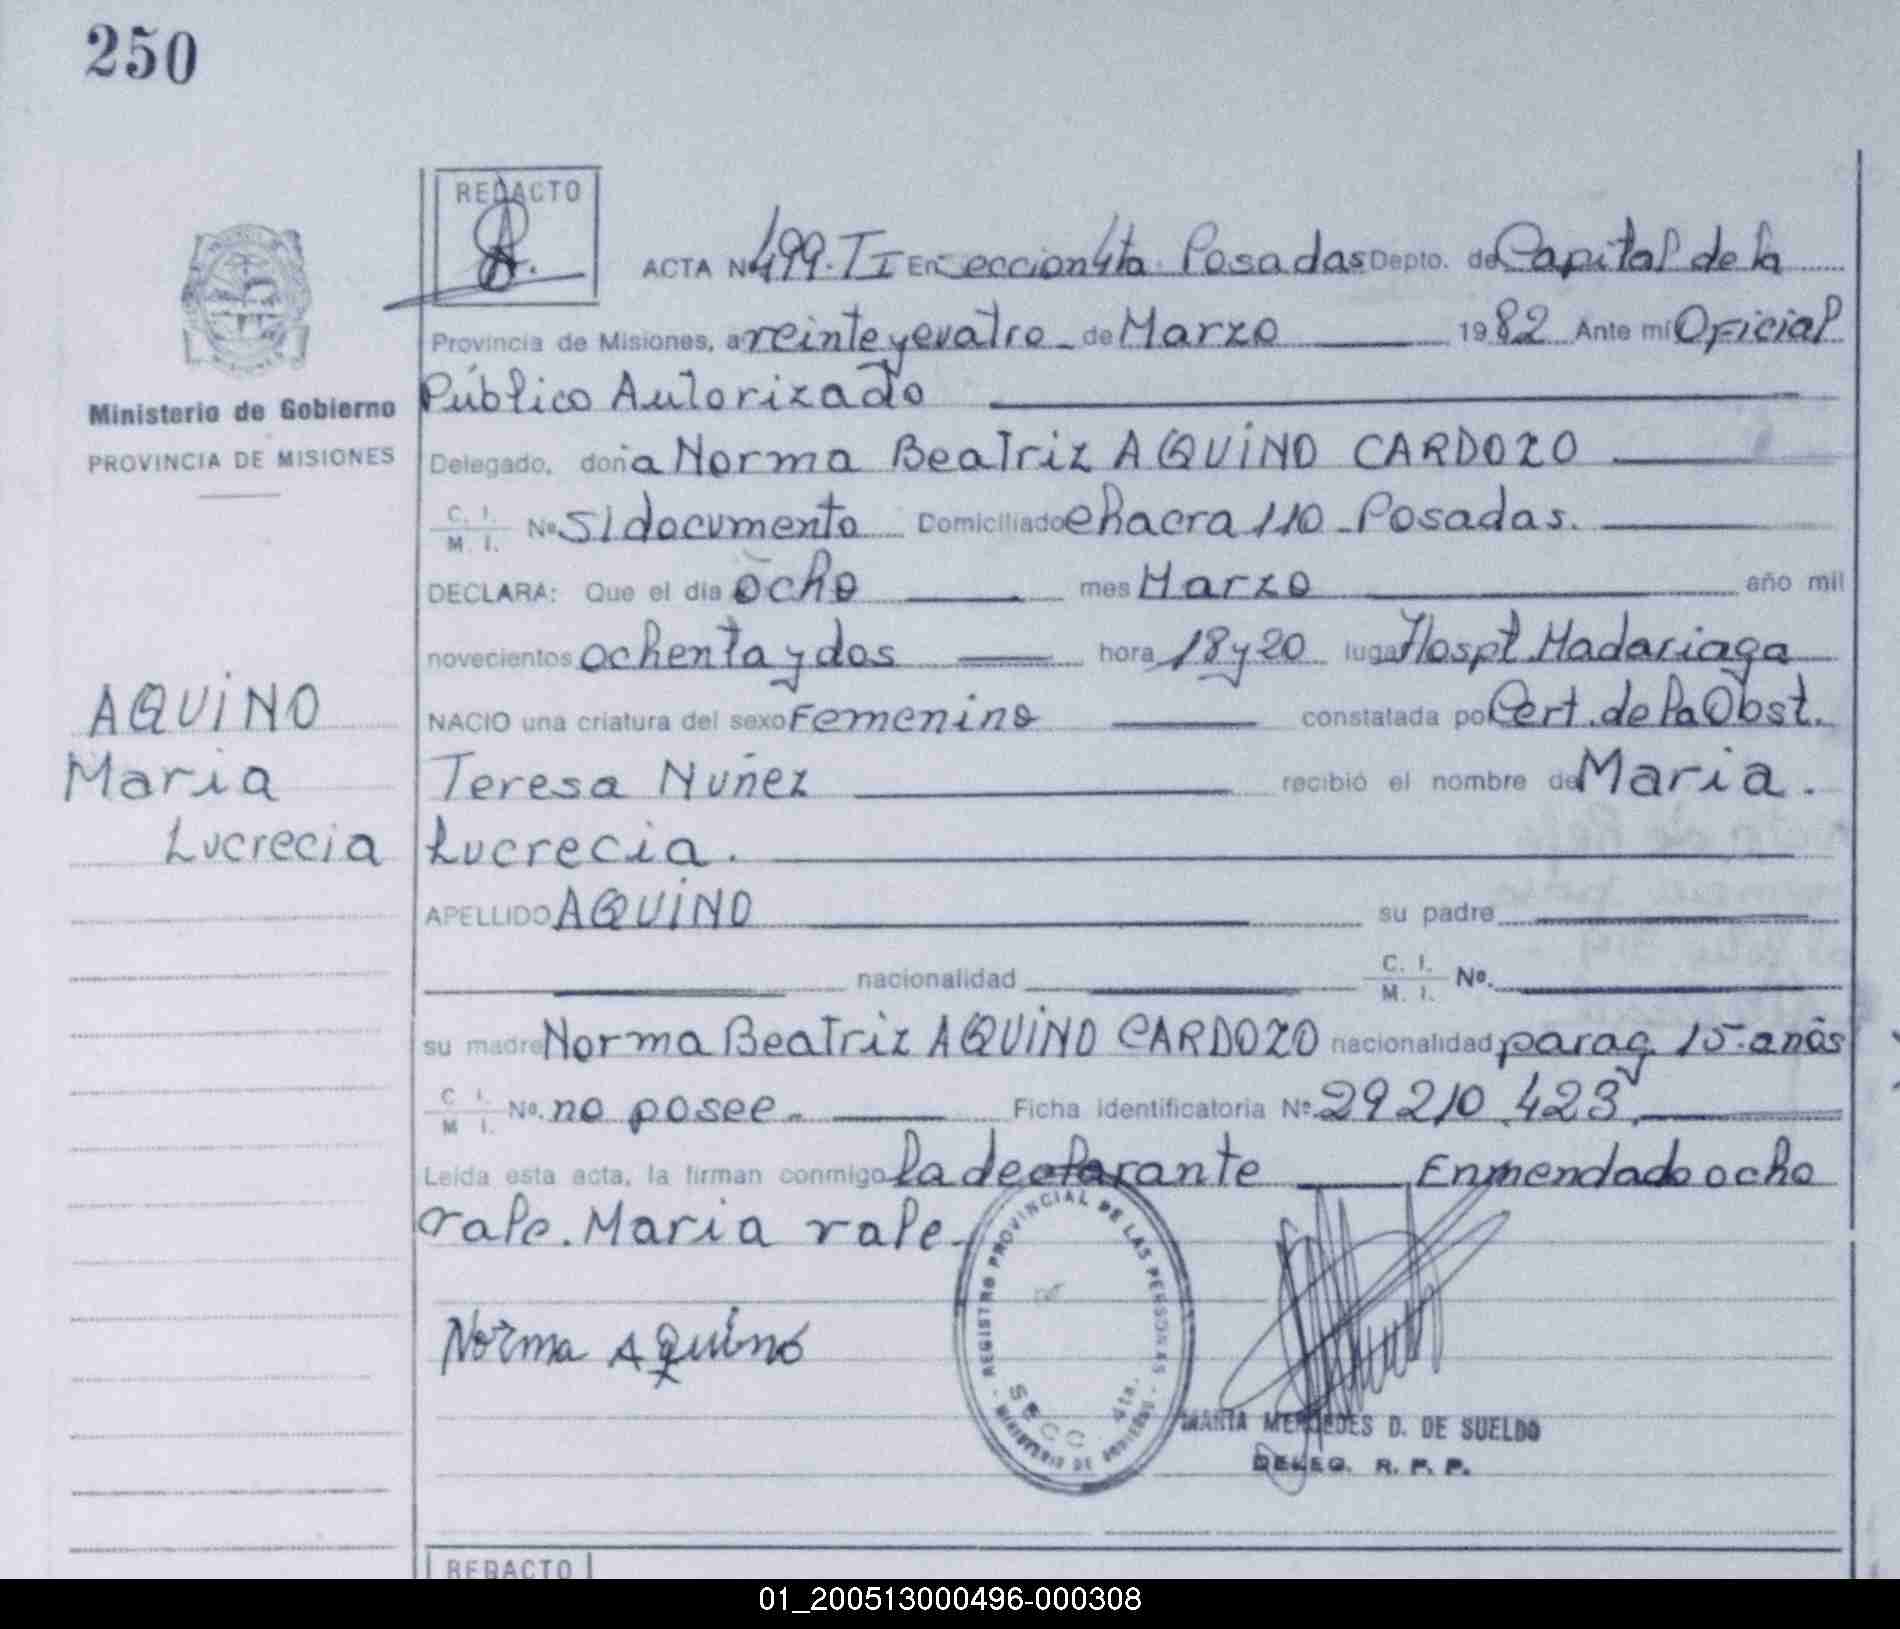 250
REDACTO
ACTA Nº 499. TI En Seccion 4ta. Posadas Depto. de Capital de la
Provincia de Misiones, a veinte y cuatro de Marzo 1982 Ante mí Oficial
Público Autorizado
Ministerio de Gobierno
PROVINCIA DE MISIONES
Delegado, doña Norma Beatriz AQUiNO CARDOZO
C. I. M. I. Nº S/documento Domiciliado chacra 110 Posadas.
DECLARA: Que el día ocho mes Marzo año mil
novecientos ochenta y dos hora 18 y 20 lugar Hospt. Madariaga
NACIO una criatura del sexo Femenino constatada por Cert. de la Obst.
Teresa Nuñez recibió el nombre de Maria.
Lucrecia.
AQUiNO
Maria
Lucrecia
APELLIDO AQUiNO su padre
nacionalidad C. I. M. I. Nº.
su madre Norma Beatriz AQUiNO CARDOZO nacionalidad parag. 15 años
C. I. M. I. Nº. no posee. Ficha identificatoria Nº 29210.423.
Leída esta acta, la firman conmigo la declarante Enmendado ocho
vale. Maria vale.
Norma Aquino
REGISTRO PROVINCIAL DE LAS PERSONAS
SECC. 4ta.
MINISTERIO DE GOBIERNO
MARIA MERCEDES D. DE SUELDO
DELEG. R. P. P.
REDACTO
01_200513000496-000308